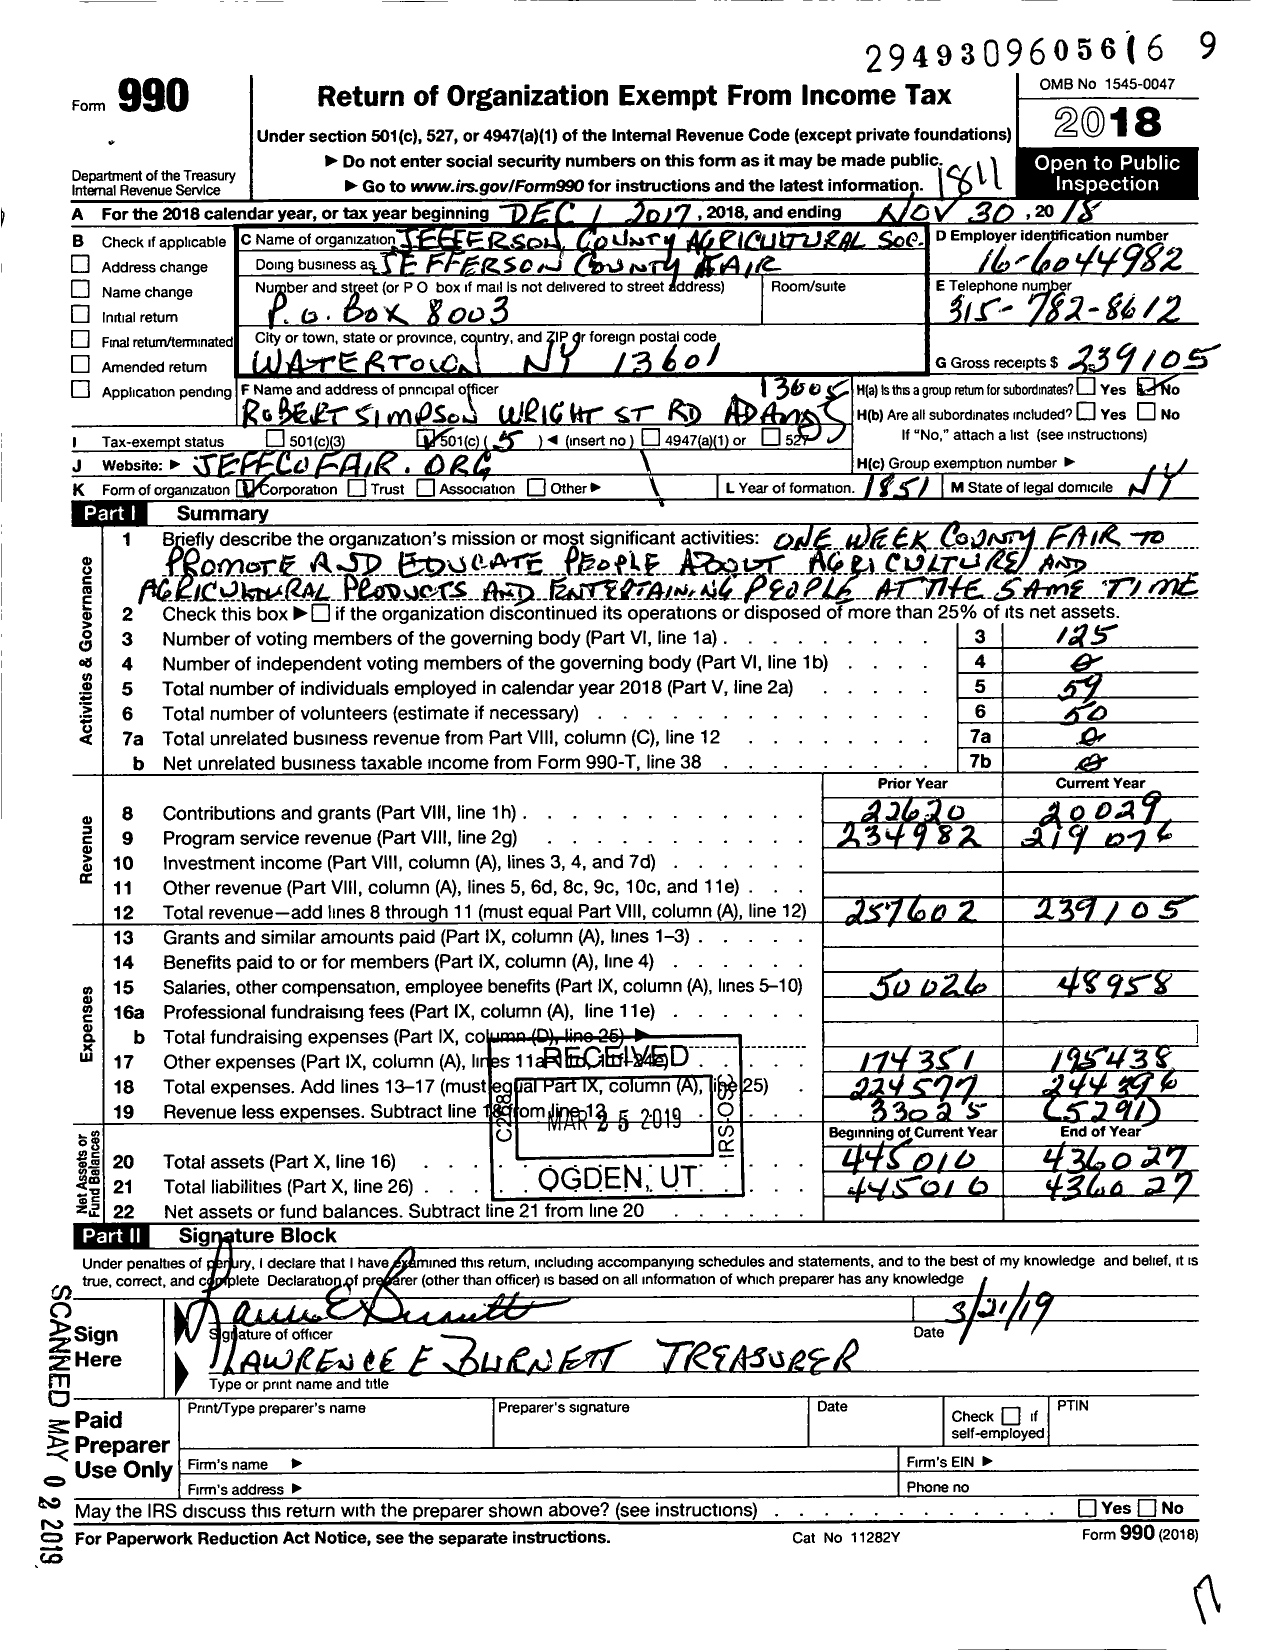 29493096056169
Form 990
Return of Organization Exempt From Income Tax
OMB No 1545-0047
2018
Under section 501(c), 527, or 4947(a)(1) of the Internal Revenue Code (except private foundations)
▶ Do not enter social security numbers on this form as it may be made public.
▶ Go to www.irs.gov/Form990 for instructions and the latest information. 1811
Department of the Treasury
Internal Revenue Service
Open to Public
Inspection
A For the 2018 calendar year, or tax year beginning DEC 1 2017, 2018, and ending NOV 30, 20 18
B Check if applicable
Address change
Name change
Initial return
Final return/terminated
Amended return
Application pending
C Name of organization JEFFERSON COUNTY AGRICULTURAL SOC.
Doing business as JEFFERSON COUNTY FAIR
Number and street (or P O box if mail is not delivered to street address) Room/suite
P.O. BOX 8003
City or town, state or province, country, and ZIP or foreign postal code
WATERTOWN NY 13601
D Employer identification number
16-6044982
E Telephone number
315-782-8612
G Gross receipts $ 239105
F Name and address of principal officer 13605
ROBERT SIMPSON WRIGHT ST RD ADAMS
H(a) Is this a group return for subordinates? Yes No
H(b) Are all subordinates included? Yes No
If "No," attach a list (see instructions)
I Tax-exempt status 501(c)(3) 501(c) ( 5 ) ◀ (insert no ) 4947(a)(1) or 527
J Website: ▶ JEFFCOFAIR.ORG
H(c) Group exemption number ▶
K Form of organization Corporation Trust Association Other ▶
L Year of formation. 1851 M State of legal domicile NY
Part I Summary
Activities & Governance
1 Briefly describe the organization's mission or most significant activities: ONE WEEK COUNTY FAIR TO
PROMOTE AND EDUCATE PEOPLE ABOUT AGRICULTURE AND
AGRICULTURAL PRODUCTS AND ENTERTAINING PEOPLE AT THE SAME TIME
2 Check this box ▶ if the organization discontinued its operations or disposed of more than 25% of its net assets.
3 Number of voting members of the governing body (Part VI, line 1a) 3 125
4 Number of independent voting members of the governing body (Part VI, line 1b) 4 0
5 Total number of individuals employed in calendar year 2018 (Part V, line 2a) 5 59
6 Total number of volunteers (estimate if necessary) 6 50
7a Total unrelated business revenue from Part VIII, column (C), line 12 7a 0
b Net unrelated business taxable income from Form 990-T, line 38 7b 0
Prior Year Current Year
Revenue
8 Contributions and grants (Part VIII, line 1h) 22620 20029
9 Program service revenue (Part VIII, line 2g) 234982 219076
10 Investment income (Part VIII, column (A), lines 3, 4, and 7d)
11 Other revenue (Part VIII, column (A), lines 5, 6d, 8c, 9c, 10c, and 11e)
12 Total revenue—add lines 8 through 11 (must equal Part VIII, column (A), line 12) 257602 239105
Expenses
13 Grants and similar amounts paid (Part IX, column (A), lines 1–3)
14 Benefits paid to or for members (Part IX, column (A), line 4)
15 Salaries, other compensation, employee benefits (Part IX, column (A), lines 5–10) 50026 48958
16a Professional fundraising fees (Part IX, column (A), line 11e)
b Total fundraising expenses (Part IX, column (D), line 25) ▶
17 Other expenses (Part IX, column (A), lines 11a–11d, 11f–24e) 174351 195438
18 Total expenses. Add lines 13–17 (must equal Part IX, column (A), line 25) 224577 244396
19 Revenue less expenses. Subtract line 18 from line 12 33025 (5291)
RECEIVED
MAR 25 2019
IRS-OSC
OGDEN, UT
Net Assets or
Fund Balances
Beginning of Current Year End of Year
20 Total assets (Part X, line 16) 445010 436027
21 Total liabilities (Part X, line 26) 445010 436027
22 Net assets or fund balances. Subtract line 21 from line 20
Part II Signature Block
Under penalties of perjury, I declare that I have examined this return, including accompanying schedules and statements, and to the best of my knowledge and belief, it is
true, correct, and complete Declaration of preparer (other than officer) is based on all information of which preparer has any knowledge
Sign
Here
Lawrence E Burnett 3/21/19
Signature of officer Date
LAWRENCE E BURNETT TREASURER
Type or print name and title
Paid
Preparer
Use Only
Print/Type preparer's name Preparer's signature Date Check if
self-employed PTIN
Firm's name ▶ Firm's EIN ▶
Firm's address ▶ Phone no
May the IRS discuss this return with the preparer shown above? (see instructions) Yes No
For Paperwork Reduction Act Notice, see the separate instructions. Cat No 11282Y Form 990 (2018)
SCANNED MAY 02 2019
17